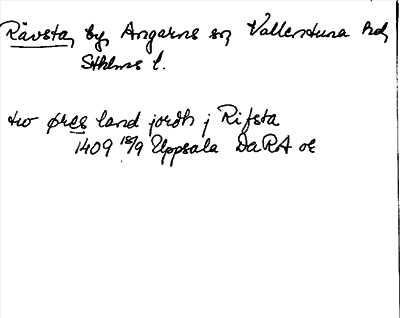 Rävsta, by, Angarns sn, Vallentuna hd,
Sthlms l.
tw øres land jordh j Rifsta
1409 18/9 Uppsala DaRA or